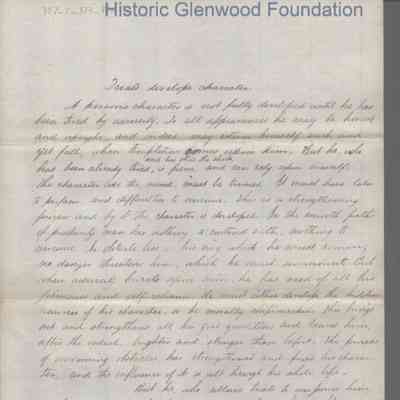 Historic Glenwood Foundation
Trials develope character.
A persons character is not fully developed until he has
been tried by adversity. To all appearances he may be honest
and upright, and indeed may esteem himself such and
yet fall, when temptation comes upon him. But he who
and has stood the shock
has been already tried, is firm and can rely upon himself.
The character like the mind must be trained. It must have labor
to perform and difficulties to overcome. This is a strengthening
process and by it the character is developed. In the smooth path
of prosperity man has nothing to contend with, nothing to
overcome no obstacle lies in his way which he must remove,
no danger threatens him, which he must surmount. But
when adversity bursts upon him, he has need of all his
firmness and self reliance. He must either develope the hidden
powers of his character, or be morally This brings
out and strengthens all his good qualities and leaves him,
after the ordeal, brighter and stronger than before. The process
of overcoming obstacles has strengthened and fixed his charac-
ter, and the influence of it is felt through his whole life.
But he, who allows trials to overpower him